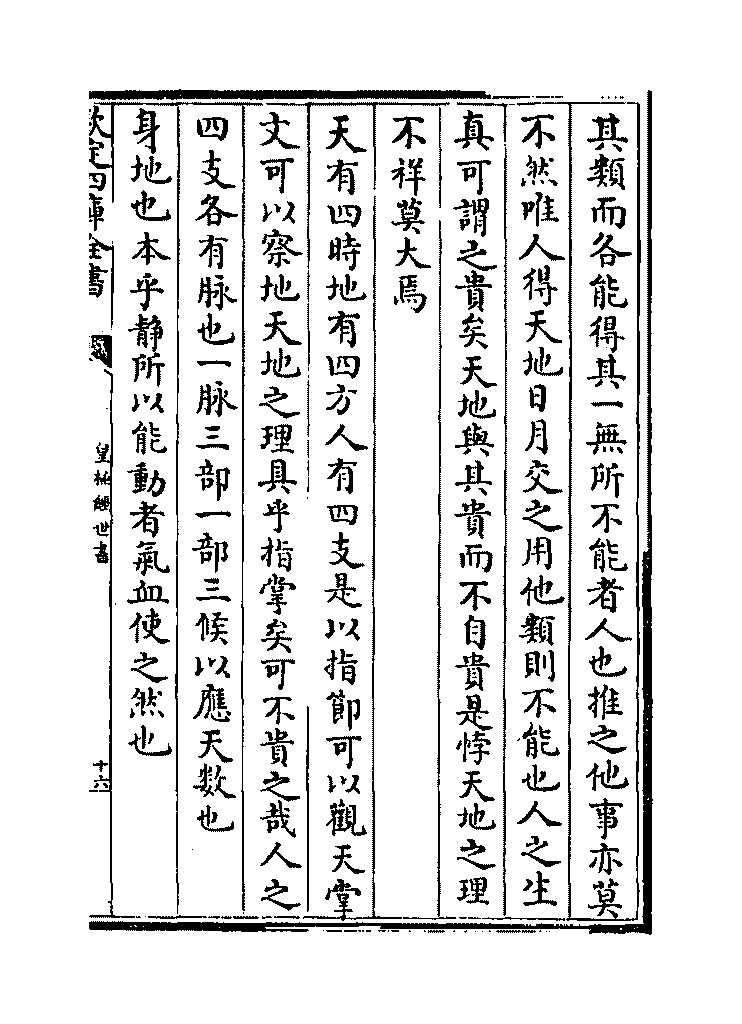 其類而各能得其一無所不能者人也推之他事亦莫
不然唯人得天地日月交之用他類則不能也人之生
真可謂之貴矣天地與其貴而不自貴是悖天地之理
不祥莫大焉
天有四時地有四方人有四支是以指節可以觀天掌
文可以察地天地之理具乎指掌矣可不貴之哉人之
四支各有脉也一脉三部一部三候以應天数也
身地也本乎静所以能動者氣血使之然也
欽定四庫全書
皇極經世書
十六